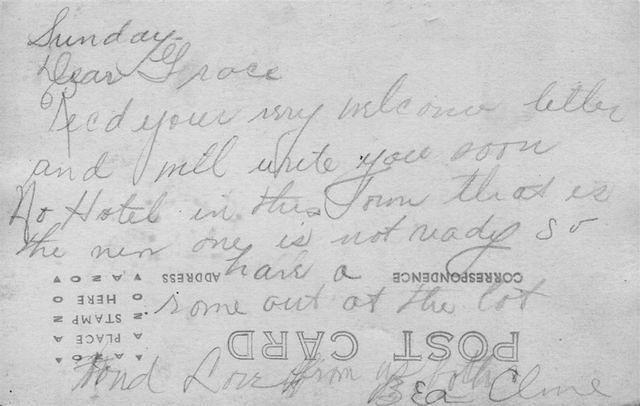 Sunday
Dear Grace
Rec'd your very welcome letter
and will write you soon
No Hotel in this Town that is
the new one is not ready so
have a
CORRESPONDENCE
ADDRESS
rome out at the lot
AZO
PLACE
STAMP
HERE
AZO
POST CARD
Fond Love from us both
Bea Cline